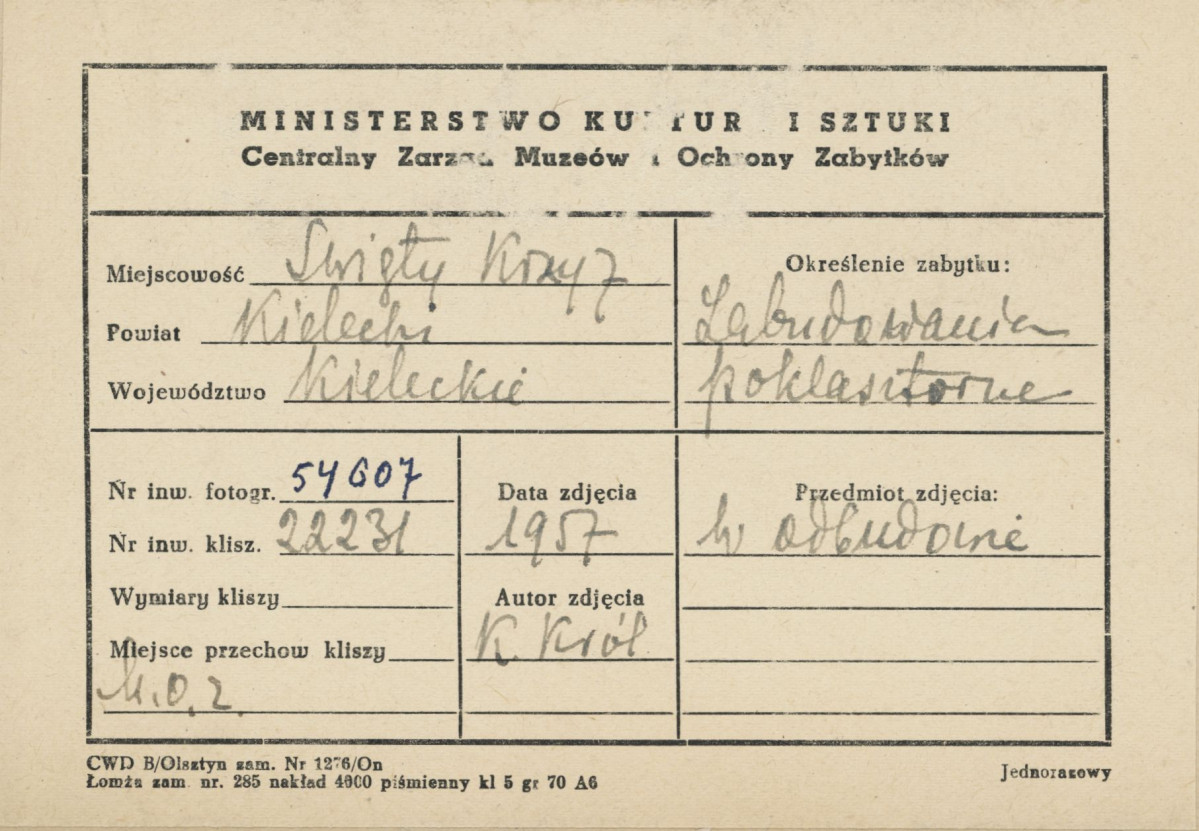 MINISTERSTWO KULTURY I SZTUKI
Centralny Zarząd Muzeów i Ochrony Zabytków
Miejscowość Święty Krzyż
Powiat Kielecki
Województwo Kieleckie
Określenie zabytku:
Zabudowania
poklasztorne
Nr inw. fotogr. 54607
Nr inw. klisz. 22231
Wymiary kliszy
Miejsce przechow kliszy
M.O.Z.
Data zdjęcia
1957
Autor zdjęcia
K. Król
Przedmiot zdjęcia:
W odbudowie
CWD B/Olsztyn zam. Nr 1276/On
Łomża zam. nr. 285 nakład 4000 piśmienny kl 5 gr 70 A6
Jednorazowy